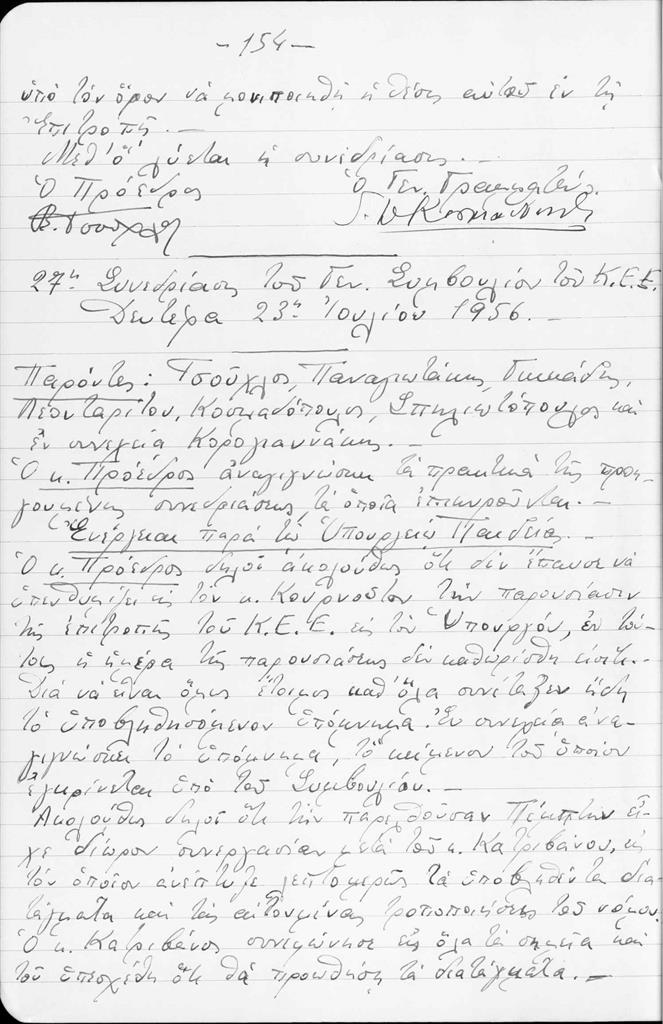 - 154 -
ὑπὸ τὸν ὅρον νὰ μονιμοποιηθῇ ἡ θέσις αὐτοῦ ἐν τῇ
Ἐπιτροπῇ. -
Μεθ' ὃ λύεται ἡ συνεδρίασις. -
Ὁ Πρόεδρος Ὁ Γεν. Γραμματεύς.
27η Συνεδρίασις τοῦ Γεν. Συμβουλίου τοῦ Κ.Ε.Ε.
Δευτέρα 23η Ἰουλίου 1956. -
Παρόντες: Τσοῦχλος, Παναγιωτάκης, Γικκάδης,
Λεονταρίτου, Κοσμαδόπουλος, Σπηλιωτόπουλος καὶ
ἐν συνεχείᾳ Κορογιαννάκης. -
Ὁ κ. Πρόεδρος ἀναγιγνώσκει τὰ πρακτικὰ τῆς προη-
γουμένης συνεδριάσεως, τὰ ὁποῖα ἐπικυροῦνται. -
Ἐνέργειαι παρὰ τῷ Ὑπουργείῳ Παιδείας. -
Ὁ κ. Πρόεδρος δηλοῖ ἀκολούθως ὅτι δὲν ἔπαυσε νὰ
ὑπενθυμίζῃ εἰς τὸν κ. Κουρνοῦτον τὴν παρουσίασιν
τῆς ἐπιτροπῆς τοῦ Κ.Ε.Ε. εἰς τὸν Ὑπουργόν, ἐν τού-
τοις ἡ ἡμέρα τῆς παρουσιάσεως δὲν καθωρίσθη εἰσέτι. -
Διὰ νὰ εἶναι ὅμως ἕτοιμος καθ' ὅλα συνέταξεν ἤδη
τὸ ὑποβληθησόμενον ὑπόμνημα. Ἐν συνεχείᾳ ἀνα-
γιγνώσκει τὸ ὑπόμνημα, τὸ κείμενον τοῦ ὁποίου
ἐγκρίνεται ὑπὸ τοῦ Συμβουλίου. -
Ἀκολούθως δηλοῖ ὅτι τὴν παρελθοῦσαν Πέμπτην εἶ-
χε δίωρον συνεργασίαν μετὰ τοῦ κ. Κατριβάνου, εἰς
τὸν ὁποῖον ἀνέπτυξε λεπτομερῶς τὰ ὑποβληθέντα δια-
τάγματα καὶ τὰς αἰτουμένας τροποποιήσεις τοῦ νόμου.
Ὁ κ. Κατριβάνος συνεφώνησε εἰς ὅλα τὰ σημεῖα καὶ
τοῦ ὑπεσχέθη ὅτι θὰ προωθήσῃ τὰ διατάγματα. -